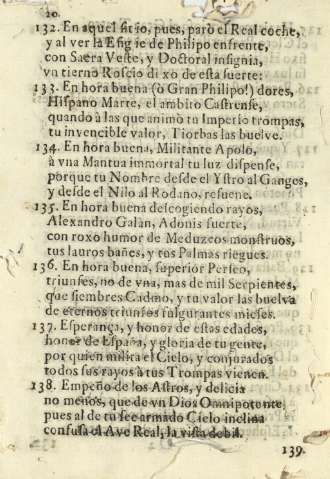 20.
132. En aquel sitio, pues, parò el Real coche,
y al ver la Efigie de Philipo enfrente,
con Sacra Veste, y Doctoral insignia,
vn tierno Roscio dixo de esta suerte:
133. En hora buena (ò Gran Philipo!) dores,
Hispano Marte, el ambito Castrense,
quando à las que animò tu Imperio trompas,
tu invencible valor, Tiorbas las buelve.
134. En hora buena, Militante Apolo,
à vna Mantua immortal tu luz dispense,
porque tu Nombre desde el Ystro al Ganges,
y desde el Nilo al Rodano, resuene.
135. En hora buena descogiendo rayos,
Alexandro Galàn, Adonis fuerte,
con roxo humor de Meduzeos monstruos,
tus lauros bañes, y tus Palmas riegues.
136. En hora buena, superior Perseo,
triunfes, no de vna, mas de mil Serpientes,
que siembres Cadmo, y tu valor las buelva
de eternos triunfos fulgurantes mieses.
137. Esperança, y honor de estas edades,
honor de España, y gloria de tu gente,
por quien milita el Cielo, y conjurados
todos sus rayos à tus Trompas vienen.
138. Empeño de los Astros, y delicia
no menos, que de vn Dios Omnipotente,
pues al de tu fee armado Cielo inclina
confusa el Ave Real, la vista debil.
139.